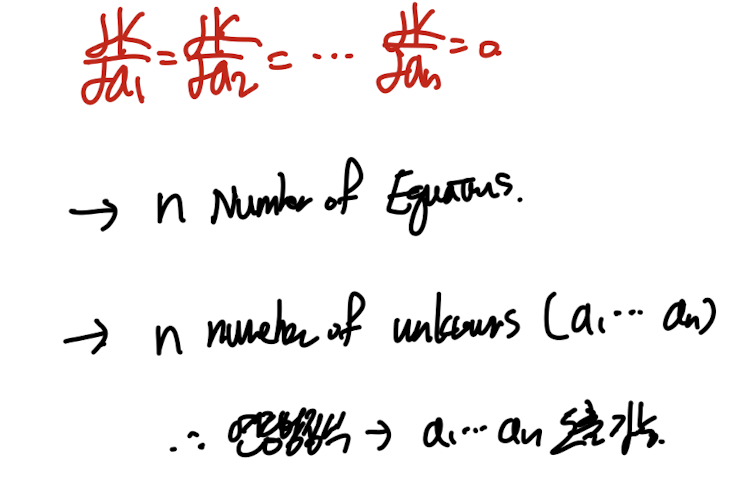 ∂K/∂a₁ = ∂K/∂a₂ = ⋯ ∂K/∂aₙ = 0
→ n Number of Equations.
→ n number of unknowns (a₁ ⋯ aₙ)
∴ 연립방정식 → a₁ ⋯ aₙ